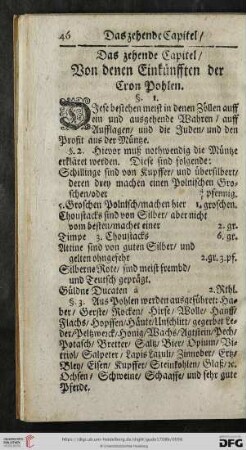 46 Das zehende Capitel /
Das zehende Capitel /
Von denen Einkünfften der
Cron Pohlen.
§. 1.
DIese bestehen meist in denen Zöllen auff
ein und ausgehende Wahren / auff
Aufflagen / und die Juden / und den
Profit aus der Müntze.
§. 2. Hievor muß nothwendig die Müntze
erkläret werden. Diese sind folgende:
Schillinge sind von Kupffer / und übersilbert /
deren drey machen einen Polnischen Gro-
schen / oder pfennig.
5. Groschen Polnisch / machen hier 1. groschen.
Choustacks sind von Silber / aber nicht
vom besten / machet einer 2. gr.
Timpe 3. Choustacks 6. gr.
Altine sind von guten Silber / und
gelten ohngefehr 2. gr. 3. pf.
Silberne Rote / sind meist frembd /
und Teutsch geprägt.
Güldne Ducaten à 2. Rthl.
§. 3. Aus Pohlen werden ausgeführet: Ha-
ber / Gerste / Rocken / Hirse / Wolle / Hanff /
Flachs / Hopffen / Häute / Unschlitt / gegerbet Le-
der / Peltzwerck / Honig / Wachs / Agtstein / Pech /
Potasch / Bretter / Saltz / Bier / Opium / Vi-
triol / Salpeter / Lapis Lazuli / Zinnober / Ertz /
Bley / Eisen / Kupffer / Steinkohlen / Glaß / ꝛc.
Ochsen / Schweine / Schaaffe / und sehr gute
Pferde.
© Universitätsbibliothek Heidelberg